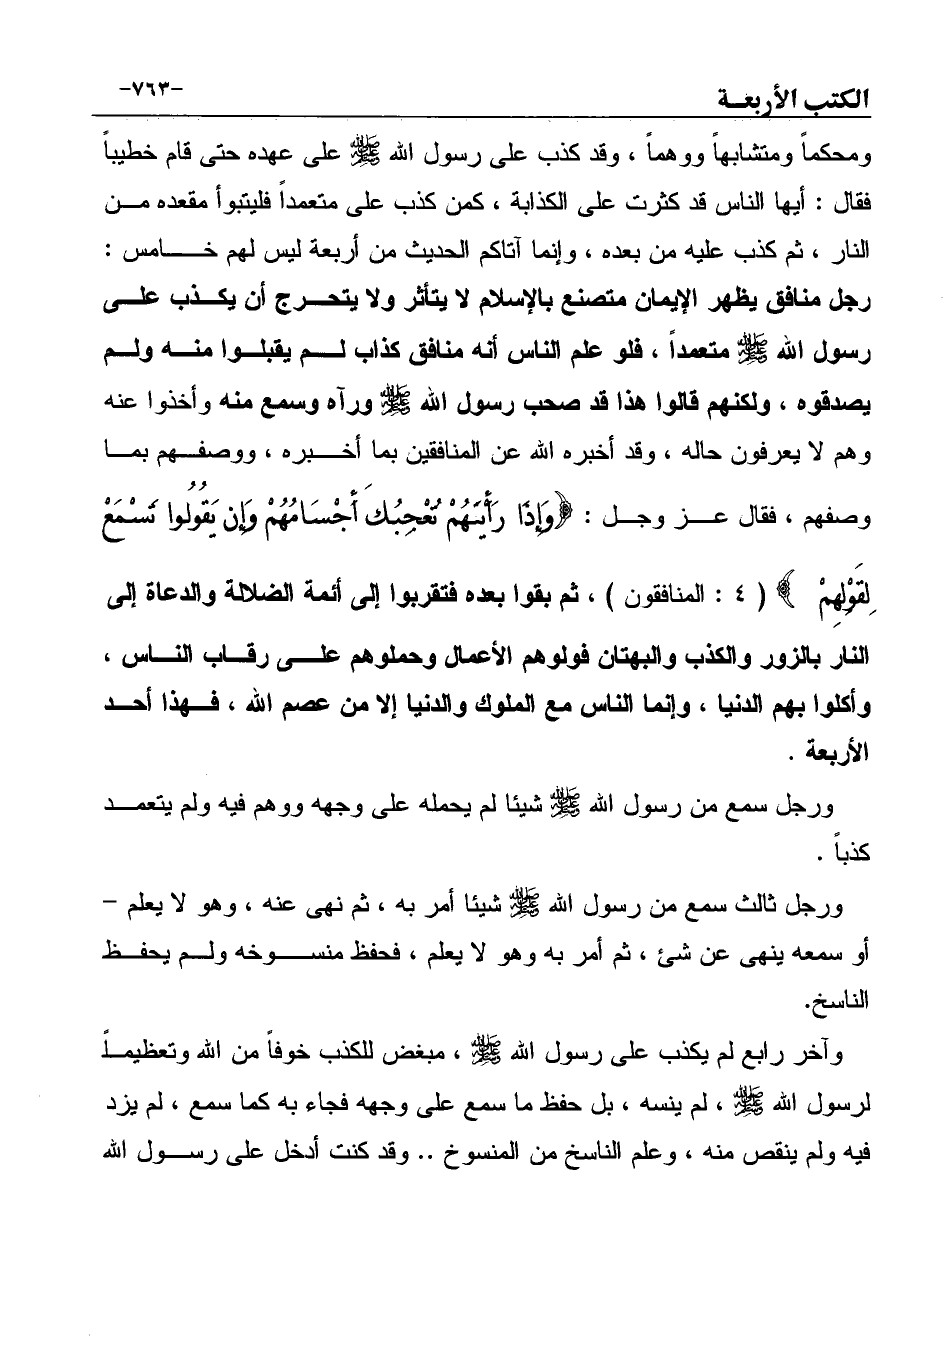 الكتب الأربعـة
-٧٦٣-
ومحكماً ومتشابهاً ووهماً ، وقد كذب على رسول الله ﷺ على عهده حتى قام خطيباً
فقال : أيها الناس قد كثرت على الكذابة ، كمن كذب على متعمداً فليتبوأ مقعده مـن
النار ، ثم كذب عليه من بعده ، وإنما آتاكم الحديث من أربعة ليس لهم خـــامس :
رجل منافق يظهر الإيمان متصنع بالإسلام لا يتأثر ولا يتحـرج أن يكـذب علـى
رسول الله ﷺ متعمداً ، فلو علم الناس أنه منافق كذاب لـم يقبلـوا منـه ولـم
يصدقوه ، ولكنهم قالوا هذا قد صحب رسول الله ﷺ ورآه وسمع منه وأخذوا عنه
وهم لا يعرفون حاله ، وقد أخبره الله عن المنافقين بما أخـبره ، ووصفـهم بمـا
وصفهم ، فقال عـز وجـل : ﴿وَإِذَا رَأَيْتَهُمْ تُعْجِبُكَ أَجْسَامُهُمْ وَإِن يَقُولُوا تَسْمَعْ
لِقَوْلِهِمْ ﴾ ( ٤ : المنافقون ) ، ثم بقوا بعده فتقربوا إلى أئمة الضلالة والدعاة إلى
النار بالزور والكذب والبهتان فولوهم الأعمال وحملوهم علـى رقـاب النـاس ،
وأكلوا بهم الدنيا ، وإنما الناس مع الملوك والدنيا إلا من عصم الله ، فـهذا أحـد
الأربعة .
ورجل سمع من رسول الله ﷺ شيئا لم يحمله على وجهه ووهم فيه ولم يتعمـد
كذباً .
ورجل ثالث سمع من رسول الله ﷺ شيئا أمر به ، ثم نهى عنه ، وهو لا يعلم –
أو سمعه ينهى عن شئ ، ثم أمر به وهو لا يعلم ، فحفظ منسـوخه ولـم يحفـظ
الناسخ.
وآخر رابع لم يكذب على رسول الله ﷺ ، مبغض للكذب خوفاً من الله وتعظيمـاً
لرسول الله ﷺ ، لم ينسه ، بل حفظ ما سمع على وجهه فجاء به كما سمع ، لم يزد
فيه ولم ينقص منه ، وعلم الناسخ من المنسوخ .. وقد كنت أدخل على رسـول الله